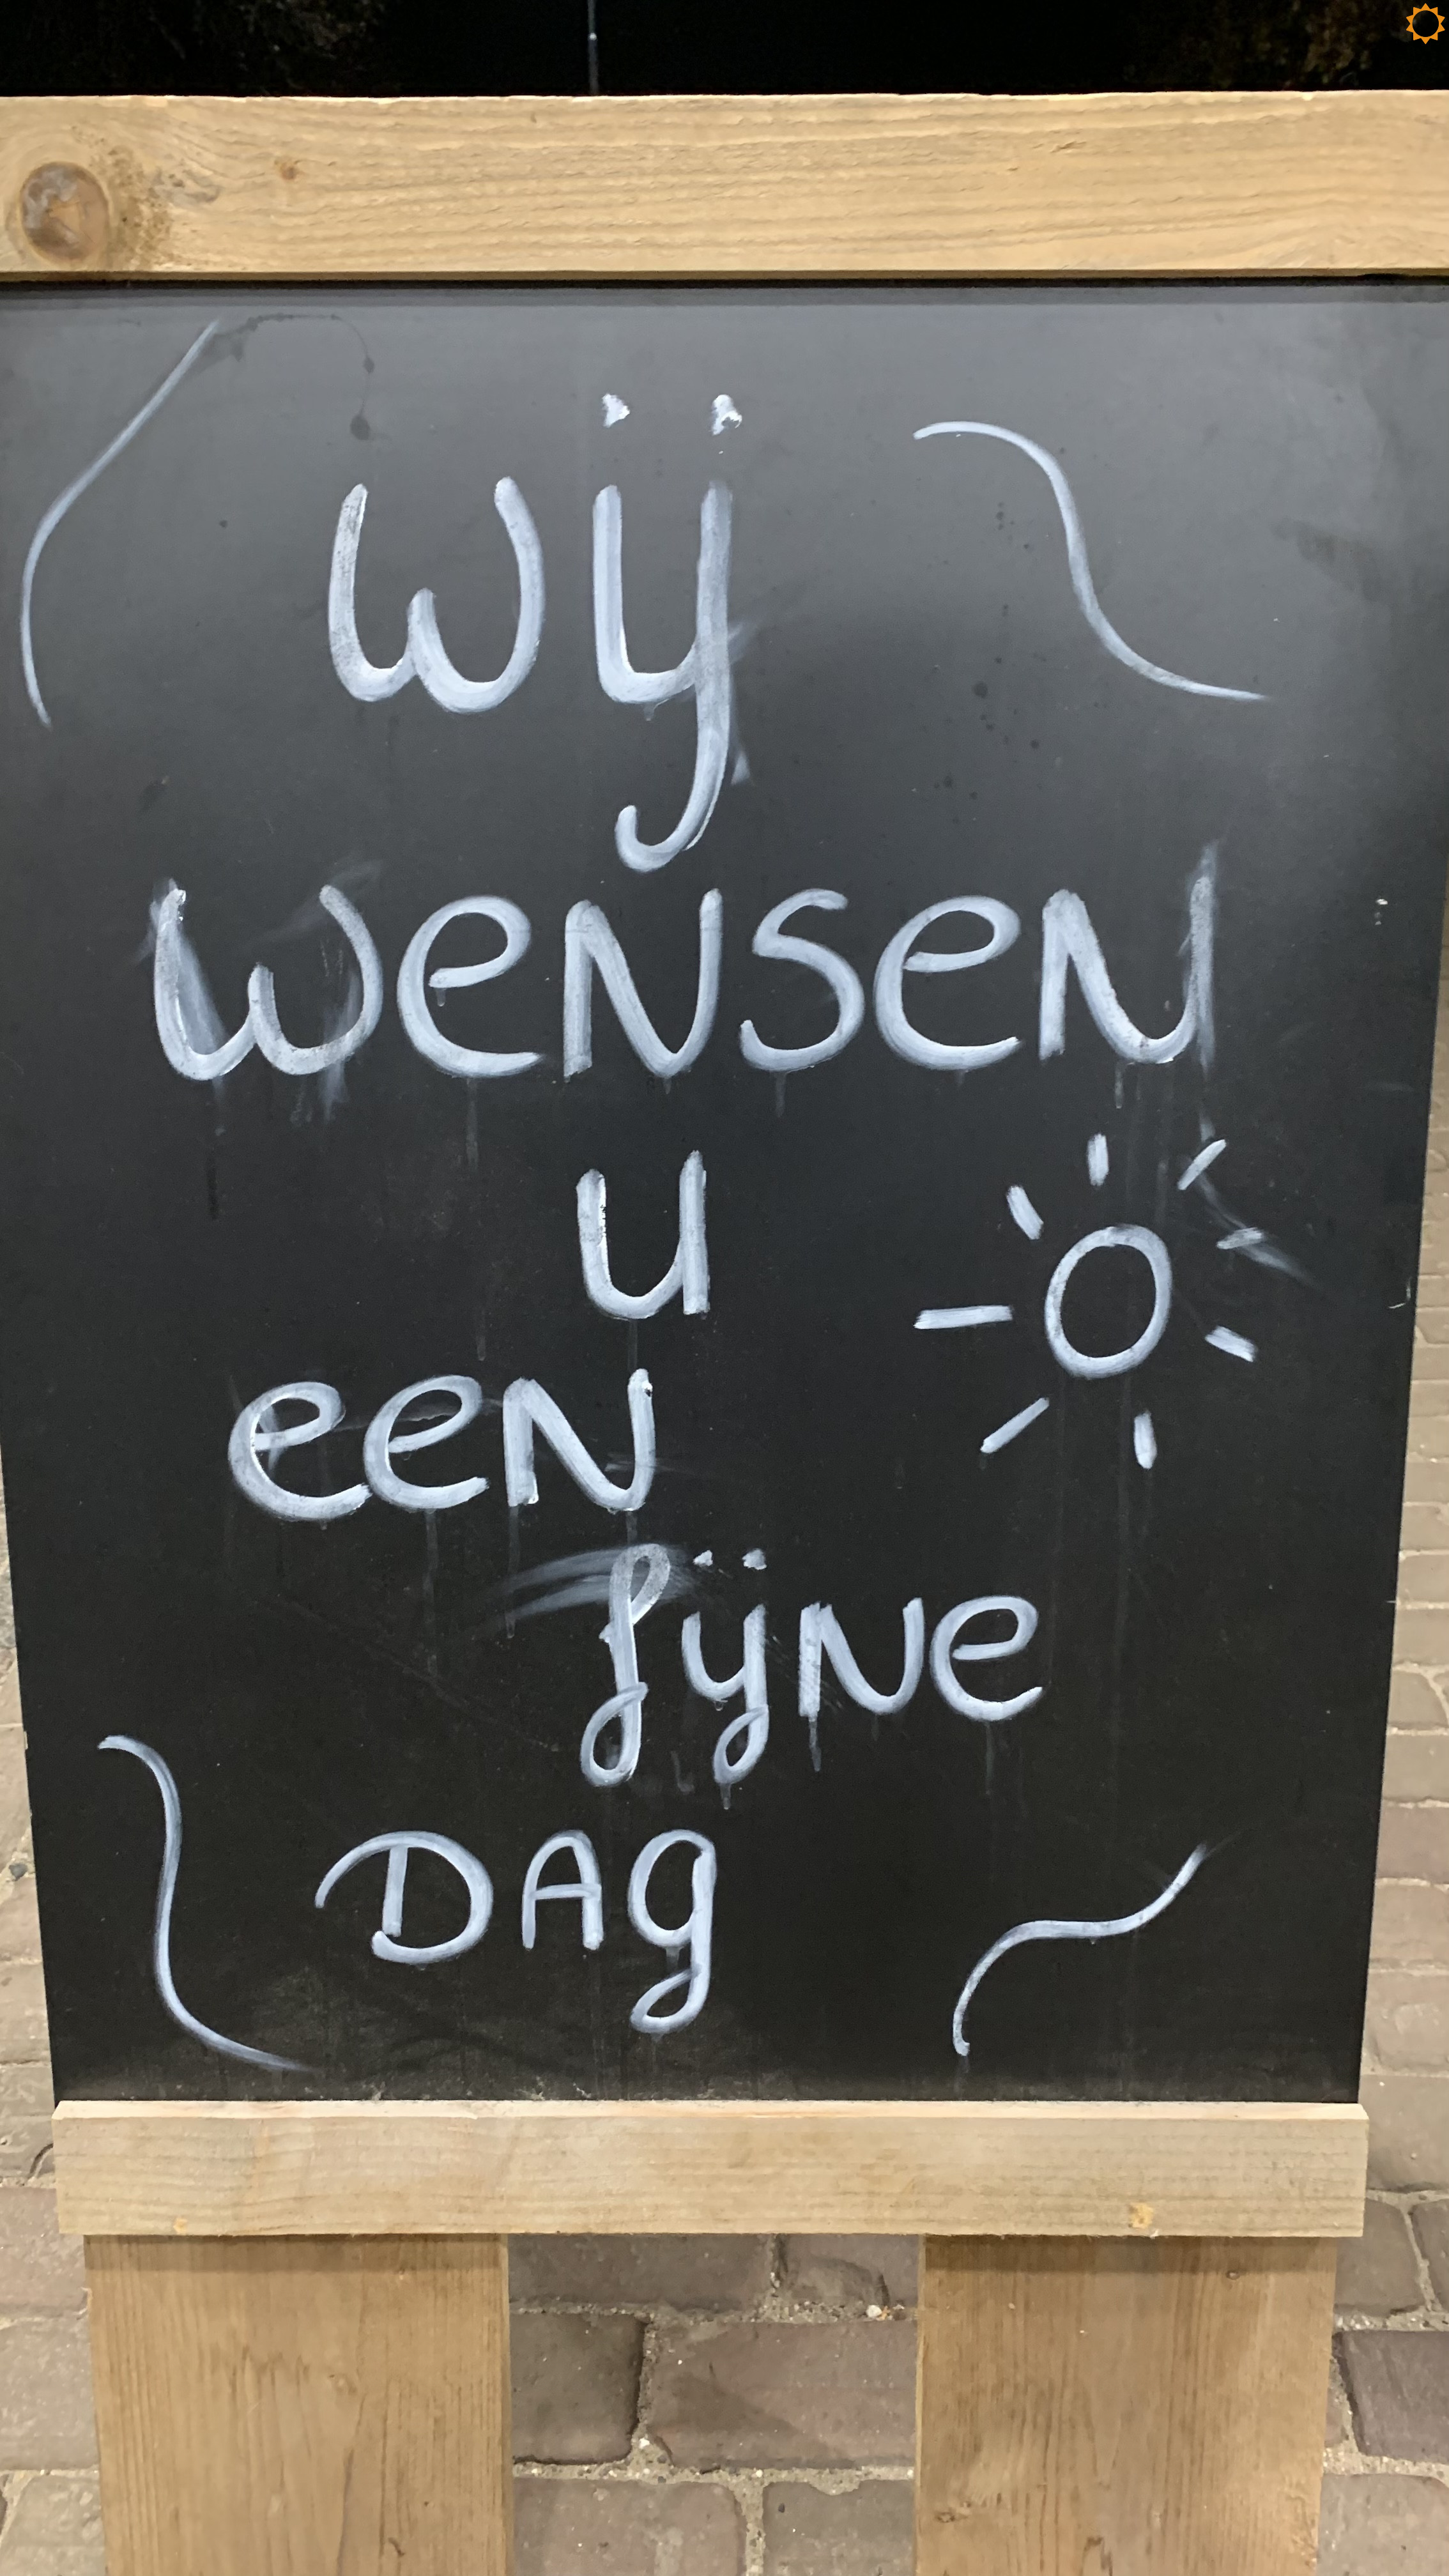 wij
wensen
u
een
fijne
DAg